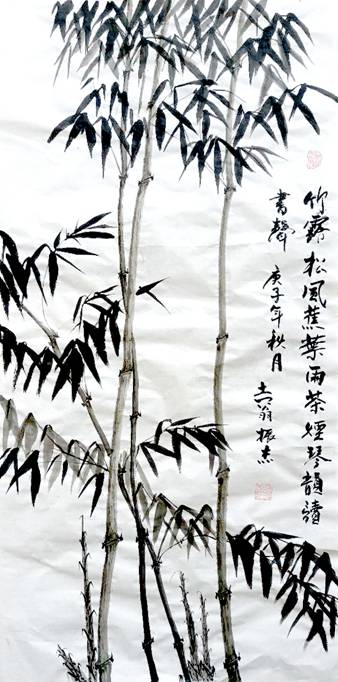 竹露松風蕉葉雨茶煙琴韻讀
書聲 庚子年秋月
翁振杰